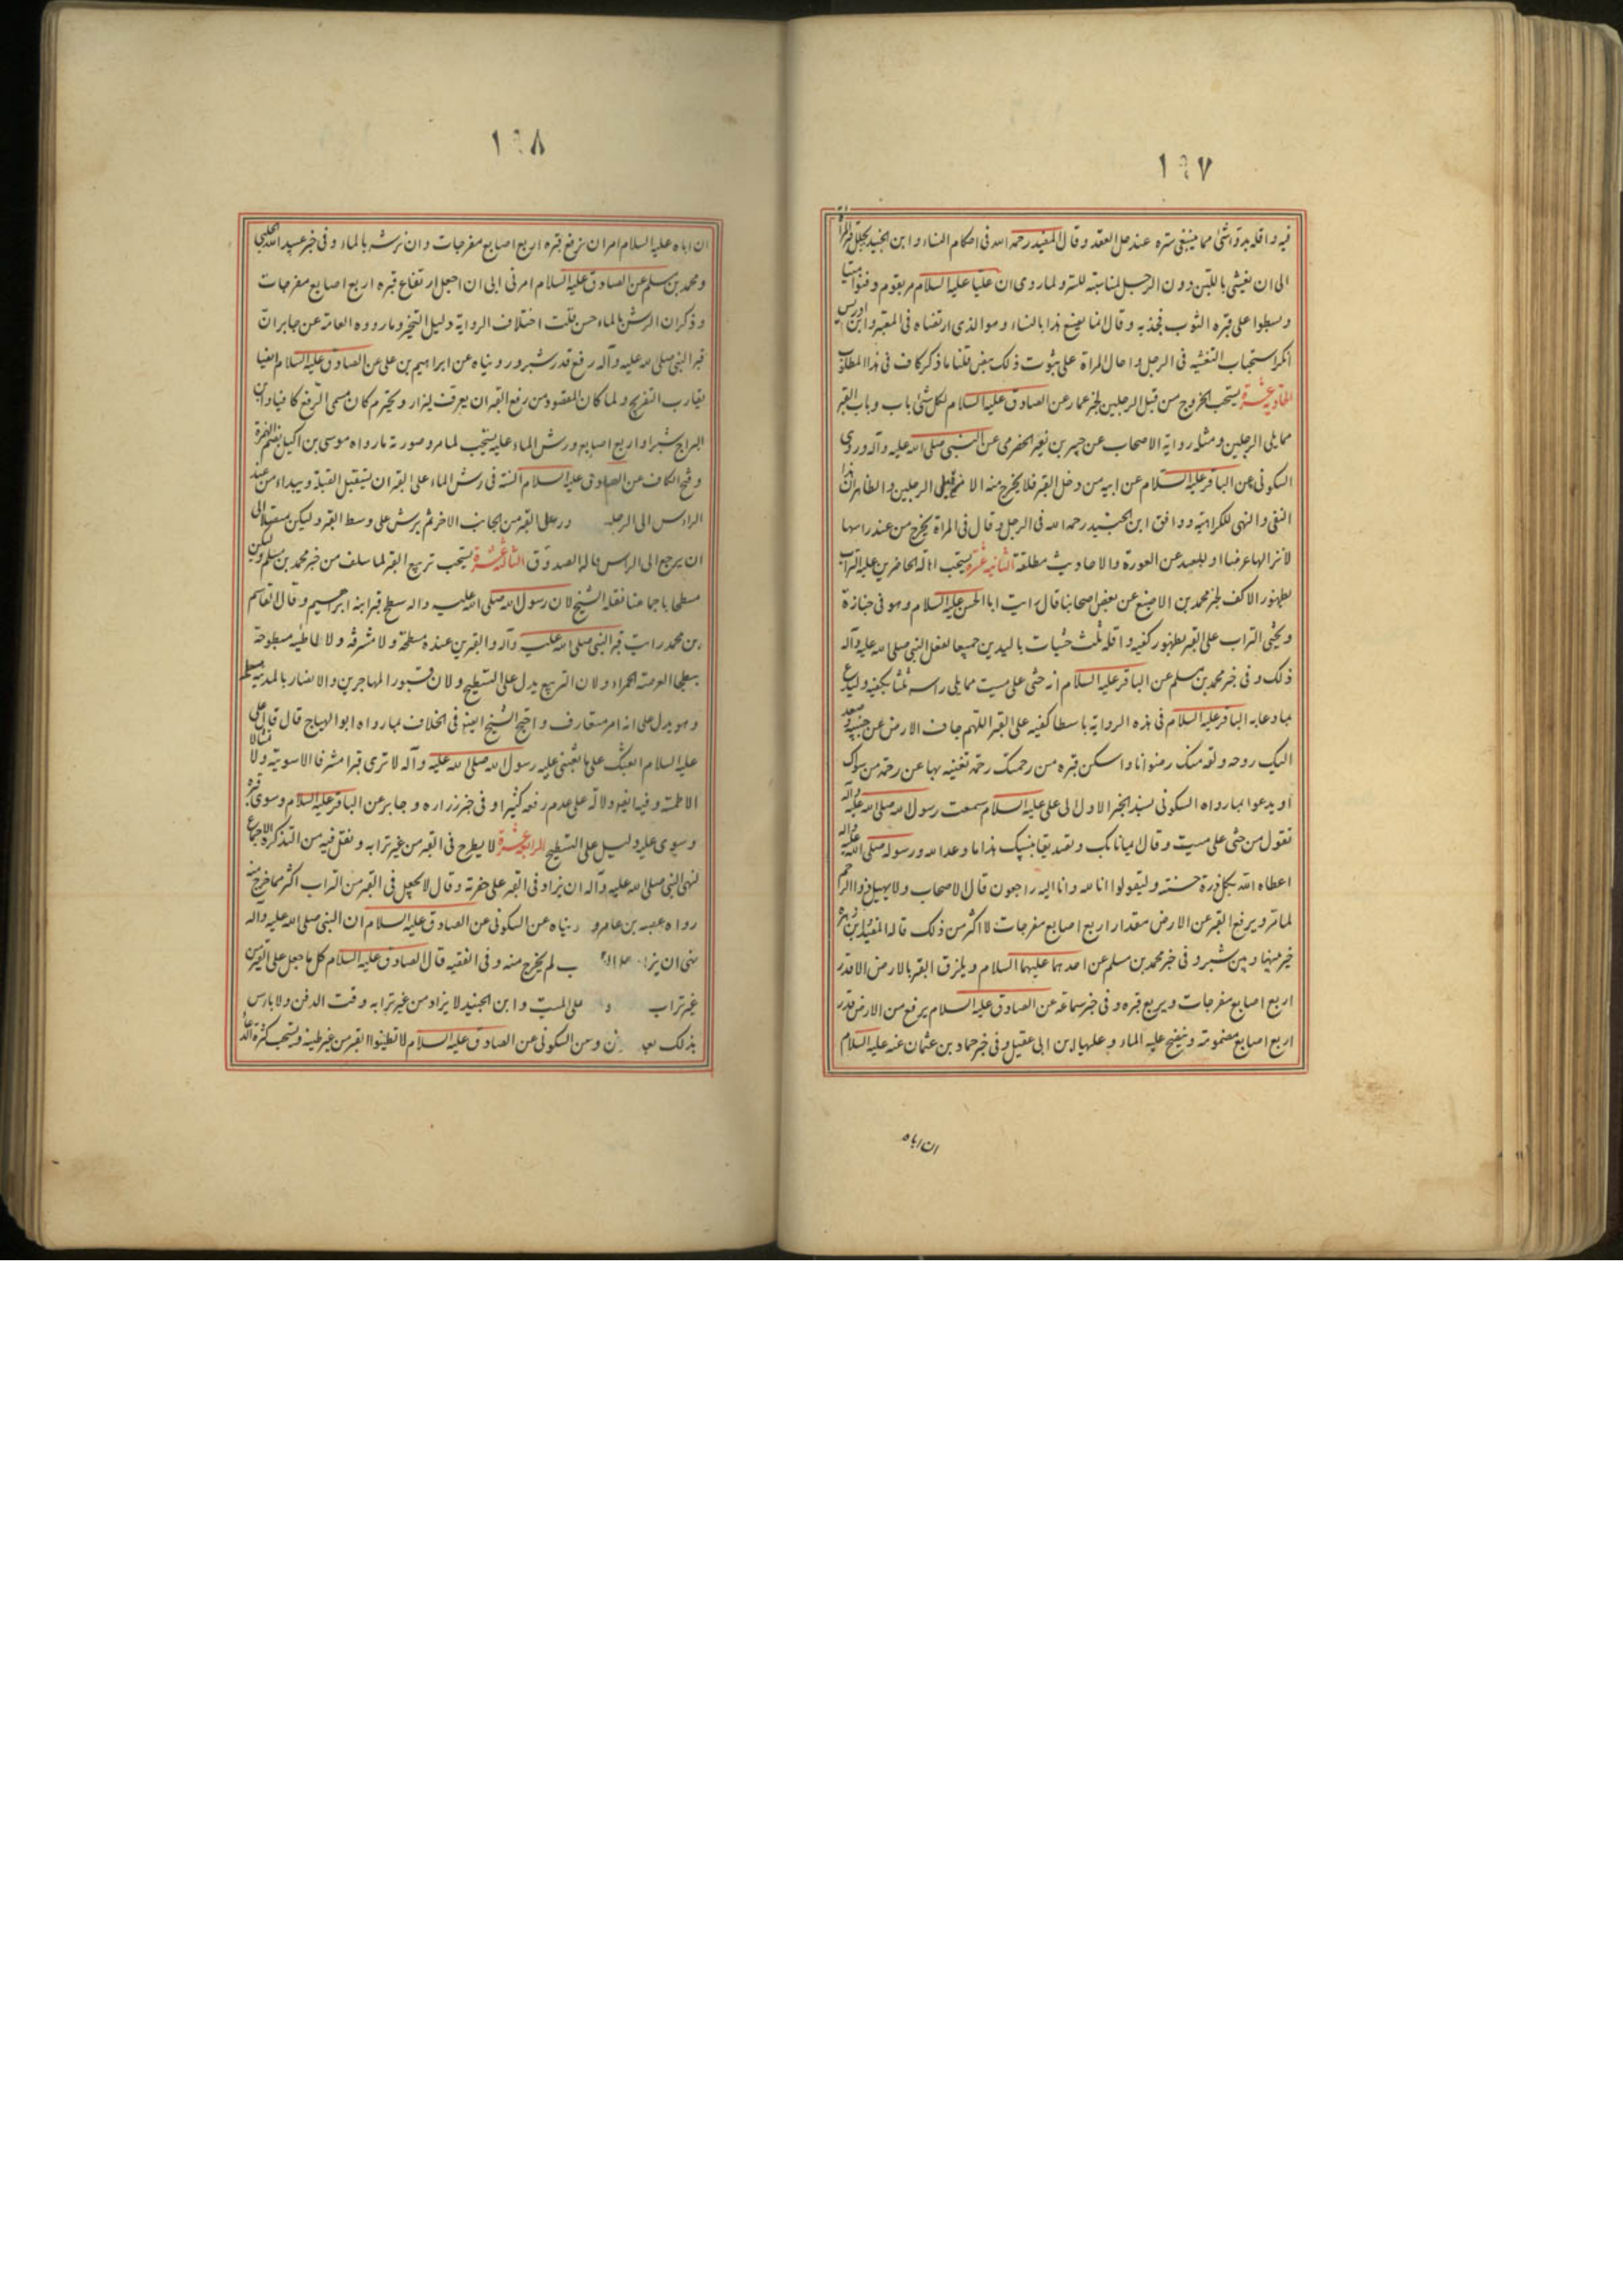 ١٩٧
فيه واقله بدو شئ مما ينبغى ستره عند حل العقد وقال المفيد رحمه الله فى احكام النساء وابن الجنيد يجلل قبر المراة
الى ان يغشى باللبن دون الرجل لمناسبته للستر ولما روى ان عليا عليه السلام مر بقوم دفنوا ميتا
وبسطوا على قبره الثوب فجذبه وقال انما يصنع هذا بالنساء وهو الذى ارتضاه فى المعتبر وابن ادريس
انكر استحباب التغشيه فى الرجل واحال المراة على ثبوت ذلك بنص قلنا ما ذكر كاف فى هذا المطلوب
الحادية عشرة يستحب الخروج من قبل الرجلين لخبر عمار عن الصادق عليه السلام لكل شئ باب وباب القبر
مما يلى الرجلين ومثله رواية الاصحاب عن جبير بن نفير الحضرمى عن النبى صلى الله عليه وآله وروى
السكونى عن الباقر عليه السلام عن ابيه من دخل القبر فلا يخرج منه الا من قبل الرجلين والظاهر ان هذا
النفى والنهى للكراهية ووافق ابن الجنيد رحمه الله فى الرجل وقال فى المراة يخرج من عند راسها
لانزالها عرضا او للبعد عن العورة والاحاديث مطلقة الثانيه عشرة يستحب اهالة الحاضرين عليه التراب
بظهور الاكف لخبر محمد بن الاصبغ عن بعض اصحابنا قال رايت ابا الحسن عليه السلام وهو فى جنازة
ويحثى التراب على القبر بظهور كفيه واقله ثلث حثيات باليدين جميعا لفعل النبى صلى الله عليه وآله
ذلك وفى خبر محمد بن مسلم عن الباقر عليه السلام انه حثى على ميت مما يلى راسه ثلثا بكفيه وليدع
بما دعا به الباقر عليه السلام فى هذه الرواية باسطا كفيه على القبر اللهم جاف الارض عن جنبيه وصعد
اليك روحه ولقه منك رضوانا واسكن قبره من رحمتك رحمة تغنيه بها عن رحمة من سواك
او يدعوا بما رواه السكونى بسند الخبر الاول الى على عليه السلام سمعت رسول الله صلى الله عليه وآله
تقول من حثى على ميت وقال ايمانا بك وتصديقا بنبيك هذا ما وعد الله ورسوله صلى الله عليه واله
اعطاه الله بكل ذرة حسنة وليقولوا انا لله وانا اليه راجعون قال الاصحاب ولا يهيل ذوا الرحم
لما مر ويرفع القبر عن الارض مقدار اربع اصابع مفرجات لا اكثر من ذلك قاله المفيد وابن زهره
خير بينها وبين شبر وفى خبر محمد بن مسلم عن احدهما عليهما السلام ويلزق القبر بالارض الا قدر
اربع اصابع مفرجات ويربع قبره وفى خبر سماعة عن الصادق عليه السلام يرفع من الارض قدر
اربع اصابع مضمومة وينضح عليه الماء وعليها ابن ابى عقيل وفى خبر حماد بن عثمان عنه عليه السلام
ان اباه
١٩٨
ان اباه عليه السلام امر ان نرفع قبره اربع اصابع مفرجات وان نرشه بالماء وفى خبر عبيد الله الحلبى
ومحمد بن مسلم عن الصادق عليه السلام امرنى ابى ان اجعل ارتفاع قبره اربع اصابع مفرجات
وذكر ان الرش بالماء حسن قلت اختلاف الرواية دليل التخير وما رووه العامة عن جابر ان
قبر النبى صلى الله عليه وآله رفع قدر شبر ورويناه عن ابراهيم بن على عن الصادق عليه السلام ايضا
يقارب التفريج ولما كان المقصود من رفع القبر ان يعرف ليزار ويحترم كان مسمى الرفع كافيا وابن
البراج شبرا واربع اصابع ورش الماء عليه يستحب لما مر وصورته ما رواه موسى بن اكيل بضم الهمزة
وفتح الكاف عن الصادق عليه السلام السنة فى رش الماء على القبر ان يستقبل القبلة ويبداء من عند
الراس الى الرجل ور على القبر من الجانب الاخر ثم يرش على وسط القبر وليكن مستقبلا الى
ان يرجع الى الراس قاله الصدوق الثالثة عشرة يستحب تربيع القبر لما سلف من خبر محمد بن مسلم وليكن
مسطحا باجماعنا نقله الشيخ لان رسول الله صلى الله عليه واله سطح قبر ابنه ابراهيم وقال القاسم
بن محمد رايت قبر النبى صلى الله عليه وآله والقبرين عنده مسطحة ولا مشرفة ولا لاطئه مبطوحة
ببطحا العرصة الحمراء ولان التربيع يدل على التسطيح ولان قبور المهاجرين والانصار بالمدينة مسطحة
وهو يدل على انه امر متعارف واحتج الشيخ ايضا فى الخلاف بما رواه ابو الهياج قال قال على
عليه السلام ابعثك على ما بعثنى عليه رسول الله صلى الله عليه وآله لا ترى قبرا مشرفا الا سويته ولا تمثالا
الا طمسته وفيه ايضا دلالة على عدم رفعه كثيرا وفى خبر زراره وجابر عن الباقر عليه السلام وسوى قبره
وسوى عليه دليل على التسطيح الرابعة عشرة لا يطرح فى القبر من غير ترابه ونقل فيه من التذكرة الاجماع
لنهى النبى صلى الله عليه وآله ان يزاد فى القبر على حفرته وقال لا يجعل فى القبر من التراب اكثر مما خرج منه
رواه عقبه بن عامر و رويناه عن السكونى عن الصادق عليه السلام ان النبى صلى الله عليه واله
نهى ان يزاد على ب لم يخرج منه وفى الفقيه قال الصادق عليه السلام كل ما جعل على القبر من
غير تراب على الميت وابن الجنيد لا يزاد من غير ترابه وقت الدفن ولا باس
بذلك بعد وعن السكونى عن الصادق عليه السلام لا تطينوا القبر من غير طينه ويستحب كثرة الدعا